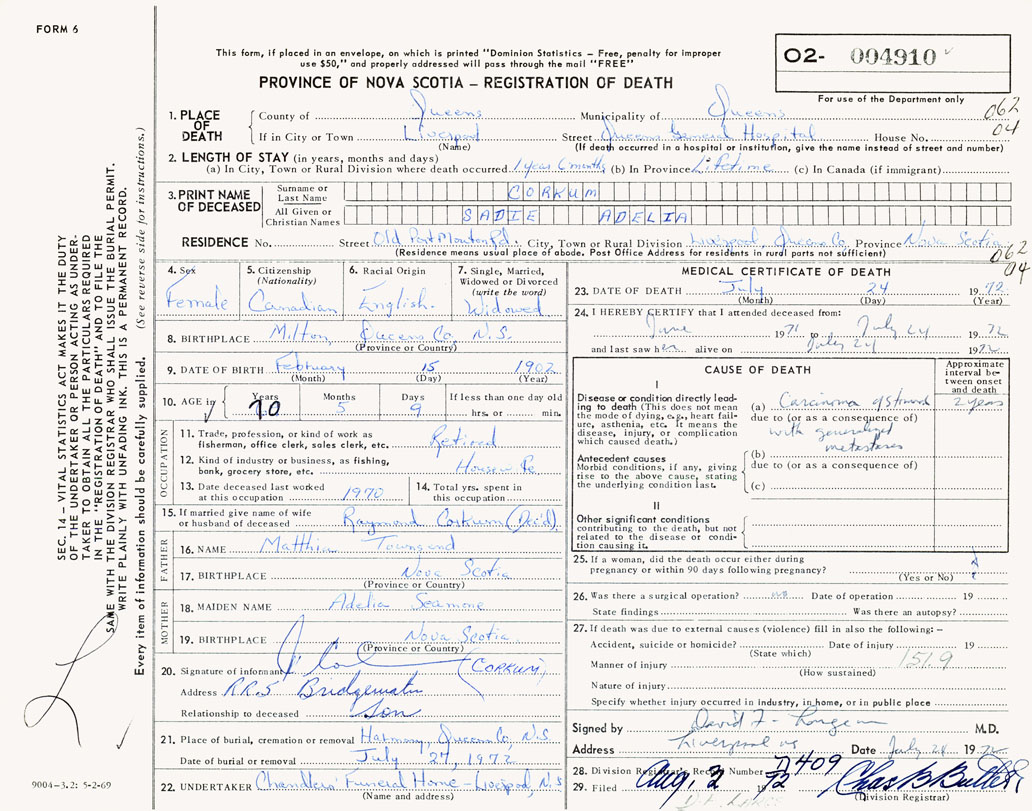 FORM 6
This form, if placed in an envelope, on which is printed "Dominion Statistics – Free, penalty for improper
use $50," and properly addressed will pass through the mail "FREE"
PROVINCE OF NOVA SCOTIA – REGISTRATION OF DEATH
O2- 004910
For use of the Department only
062
04
1. PLACE OF DEATH
County of Queens Municipality of Queens
If in City or Town Liverpool Street Queens General Hospital House No.
(Name) (If death occurred in a hospital or institution, give the name instead of street and number)
2. LENGTH OF STAY (in years, months and days)
(a) In City, Town or Rural Division where death occurred 1 year 6 months (b) In Province Lifetime (c) In Canada (if immigrant)
3. PRINT NAME OF DECEASED
Surname or Last Name CORKUM
All Given or Christian Names SADIE ADELIA
RESIDENCE No. Street Old Port Mouton Rd. City, Town or Rural Division Liverpool, Queens Co. Province Nova Scotia
(Residence means usual place of abode. Post Office Address for residents in rural parts not sufficient)
062
04
4. Sex
Female
5. Citizenship
(Nationality)
Canadian
6. Racial Origin
English
7. Single, Married,
Widowed or Divorced
(write the word)
Widowed
8. BIRTHPLACE Milton, Queens Co, N.S.
(Province or Country)
9. DATE OF BIRTH February 15 1902
(Month) (Day) (Year)
10. AGE in Years Months Days If less than one day old
70 5 9 hrs. or min.
OCCUPATION
11. Trade, profession, or kind of work as
fisherman, office clerk, sales clerk, etc. Retired
12. Kind of industry or business, as fishing,
bank, grocery store, etc.
13. Date deceased last worked
at this occupation 1970
14. Total yrs. spent in
this occupation
15. If married give name of wife
or husband of deceased Raymond Corkum (Dec'd)
FATHER
16. NAME Townsend
17. BIRTHPLACE Nova Scotia
(Province or Country)
MOTHER
18. MAIDEN NAME Adelia Seamone
19. BIRTHPLACE Nova Scotia
(Province or Country)
20. Signature of informant (CORKUM)
Address R.R.5 Bridgewater
Relationship to deceased Son
21. Place of burial, cremation or removal Harmony, Queens Co, N.S.
Date of burial or removal July 27, 1972
22. UNDERTAKER Chandlers Funeral Home – Liverpool, N.S
(Name and address)
MEDICAL CERTIFICATE OF DEATH
23. DATE OF DEATH July 24 1972
(Month) (Day) (Year)
24. I HEREBY CERTIFY that I attended deceased from:
June 1971 to July 24 1972
and last saw her alive on July 24 1972
CAUSE OF DEATH
Approximate interval between onset and death
I
Disease or condition directly leading
to death (This does not mean
the mode of dying, e.g., heart failure,
asthenia, etc. It means the
disease, injury, or complication
which caused death.)
(a) Carcinoma of Stomach 2 years
due to (or as a consequence of)
with generalized
metastases
Antecedent causes
Morbid conditions, if any, giving
rise to the above cause, stating
the underlying condition last.
(b)
due to (or as a consequence of)
(c)
II
Other significant conditions
contributing to the death, but not
related to the disease or condition
causing it.
25. If a woman, did the death occur either during
pregnancy or within 90 days following pregnancy?
(Yes or No)
26. Was there a surgical operation? Date of operation 19
State findings Was there an autopsy?
27. If death was due to external causes (violence) fill in also the following: –
Accident, suicide or homicide? Date of injury 19
(State which)
Manner of injury 151.9
(How sustained)
Nature of injury
Specify whether injury occurred in industry, in home, or in public place
Signed by David F. M.D.
Address Liverpool NS Date July 24 1972
28. Division Registrar's Record Number 409
29. Filed Aug. 2 1972 Chas B Butler
(Division Registrar)
SEC. 14 – VITAL STATISTICS ACT MAKES IT THE DUTY
OF THE UNDERTAKER OR PERSON ACTING AS UNDERTAKER
TO OBTAIN ALL THE PARTICULARS REQUIRED
IN THE "REGISTRATION OF DEATH" AND TO FILE THE
SAME WITH THE DIVISION REGISTRAR WHO SHALL ISSUE THE BURIAL PERMIT.
WRITE PLAINLY WITH UNFADING INK. THIS IS A PERMANENT RECORD.
Every item of information should be carefully supplied. (See reverse side for instructions.)
9004-3.2: 5-2-69